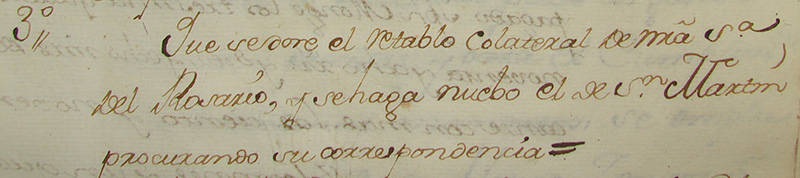 3º Que se dore, el retablo Colateral de nrã Sª
del Rosario, y se haga nuebo el de Sⁿ Martin
procurando su correspondencia =